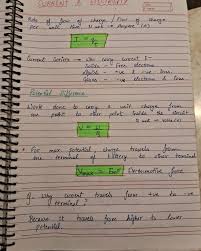 CURRENT & ELECTRICITY
Rate of flow of charge / Flow of charge
per unit time. S unit → Ampere (A)
I = q/t
Current Carriers → Who carry current I-
Solids - Free electrons
Liquids - -ve & +ve ions
Gases - -ve electrons & ions
Potential Difference
Work done to carry a unit charge from
one point to other point inside the circuit
S unit → Volts (V)
V = W/q
• For max potential charge travels from
one terminal of battery to other terminal
Vmax = Emf Electromotive force
Q. Why current travels from +ve to -ve
terminal?
Because it travels from higher to lower
potential.